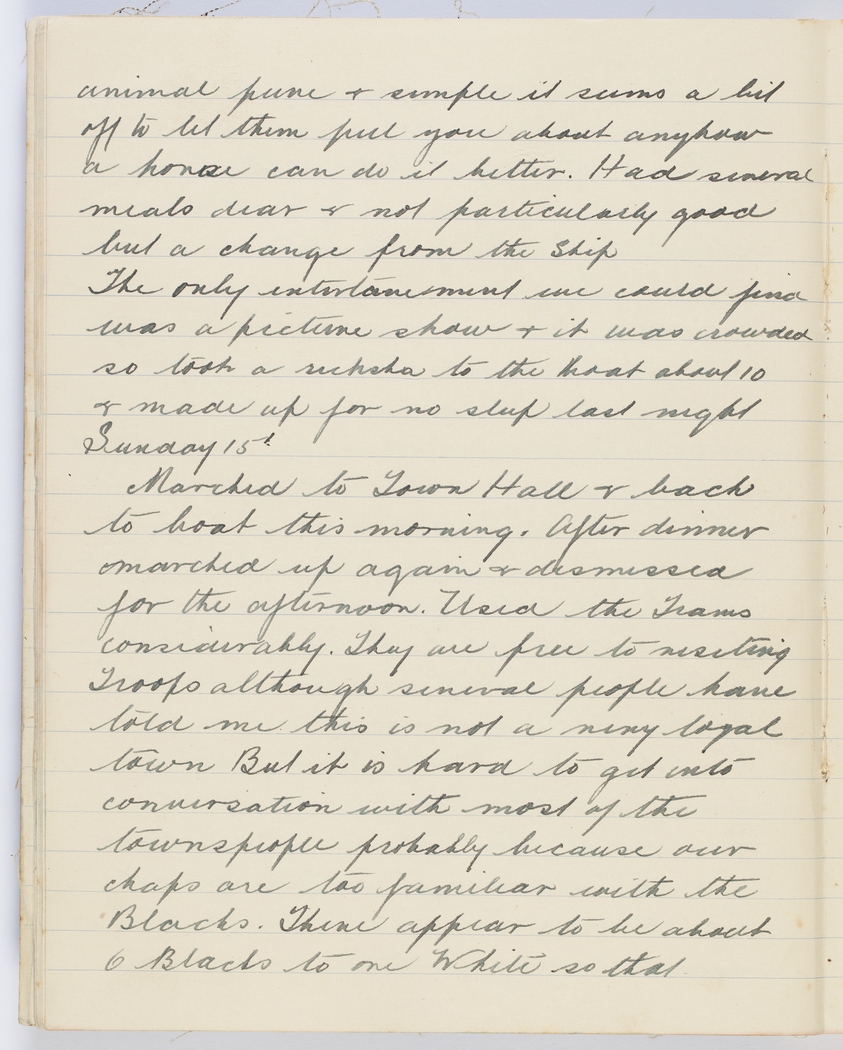 animal pure & simple it seems a bit
off to let them pull you about anyhow
a horse can do it better. Had several
meals dear & not particularly good
but a change from the Ship
The only entertainment we could find
was a picture show & it was crowded
so took a ricksha to the boat about 10
& made up for no sleep last night
Sunday 15t
Marched to Town Hall & back
to boat this morning. After dinner
marched up again & dismissed
for the afternoon. Used the Trams
considerably. They are free to visiting
Troops although several people have
told me this is not a very loyal
town But it is hard to get into
conversation with most of the
townspeople probably because our
chaps are too familiar with the
Blacks. There appear to be about
6 Blacks to one White so that